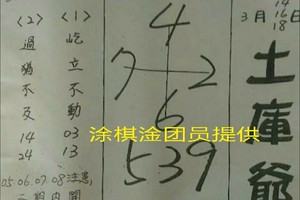 〈1〉
屹立不動
03
13
〈2〉
過猶不及
14
24
05.06.07.08注意
二期內開
4
7 2
6
539
涂棋淦团员提供
14
16
3月18日
土庫爺